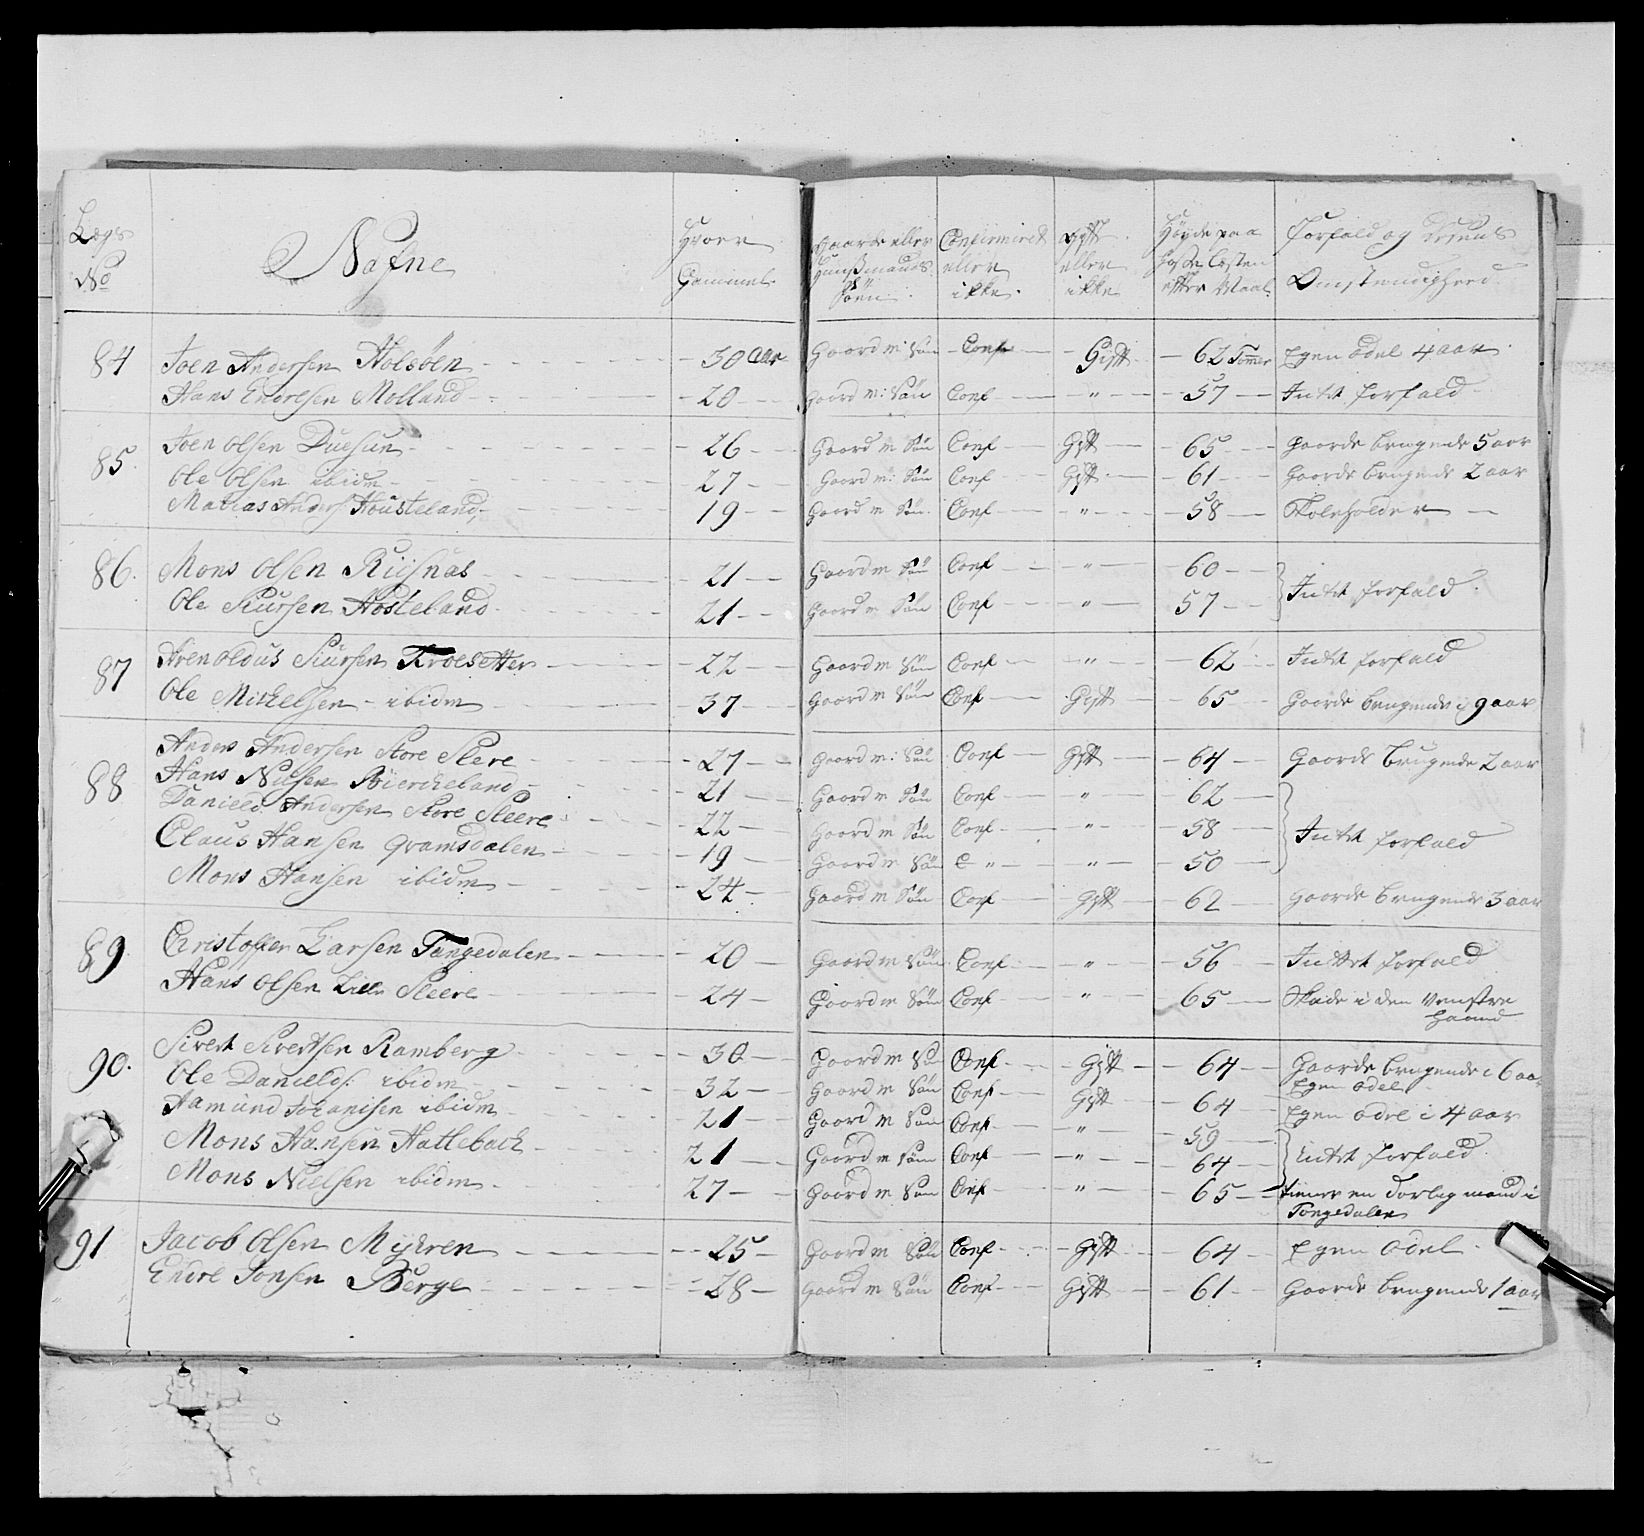 Lægs No | Nafne | Hvoer Gammel | Gaarde eller Huusmands Søen | Confirmiret eller ikke | Gift eller ikke | Høyde paa Hosse Lesten efter Maal | Forfald og Desens Omstendighed
84 Joen Andersen Holsøen 30 Aar Gaord m: Søn Conf Gift 62 Tommer Egen odel 4 aar
Hans Endresen Molland 20 Gaord m: Søn Conf " 57 Intet forfald
85. Joen Olsen Duesun 26 Gaord m Søn Conf Gift 65 Gaorde brugende 5 aar
Ole Olsen ibidm 27 Gaord m: Søn Conf Gift 61 Gaorde brugende 2 aar
Matias Anders Housteland 19 Gaord m Søn Conf " 58 Skoleholder
86. Mons Olsen Riisnæs 21 Gaord m Søn Conf " 60 Intet forfald
Ole Siursen Hosteland 21 Gaord m Søn Conf " 57
87 Arenoldus Siursen Troesetter 22 Gaord m Søn Conf " 62 Intet forfald
Ole Mikkelsen ibidm 37 Gaord m Søn Conf Gift 65 Gaorde brugende i 9 aar
88 Anders Andersen Store Sleere 27 Gaord m: Søn Conf Gift 64 Gaorde brugende 2 aar
Hans Nilsen Biercheland 21 Gaord m Søn Conf " 62
Danield Andersen Store Sleere 22 Gaord m Søn Conf " 58 Intet forfald
Claus Hansen Qvamsdalen 19 Gaord m Søn C " " 50
Mons Hansen ibidm 24 Gaord m Søn Conf Gift 62 Gaorde brugende 3 aar
89 Christoffer Larsen Tangedalen 20 Gaord m Søn Conf " 56 Inttet forfald
Hans Olsen Lille Sleere 24 Gaord m Søn Conf " 65 Skade i den venstre Haand
90. Sivert Sivertsen Ramberg 30 Gaord m Søn Conf Gift 64 Gaorde brugende i 6 aar
Egen odel
Ole Danields: ibidm 32 Gaord m Søn Conf Gift 64 Egen odel i 4 aar
Aamund Johanisen ibidm 21 Gaord m Søn Conf " 59 intet forfald
Mons Hansen Hatlebach 21 Gaord m Søn Conf " 64
Mons Nielsen ibidm 27 Gaord m Søn Conf " 65 tiener en Dorlig mand i Tongedalen
91 Jacob Olsen Mykren 25 Gaord m Søn Conf Gift 64 Egen Odel
Endre Jonsen Berge 28 Gaord m Søn Conf Gift 61 Gaorde brugende 1 aar